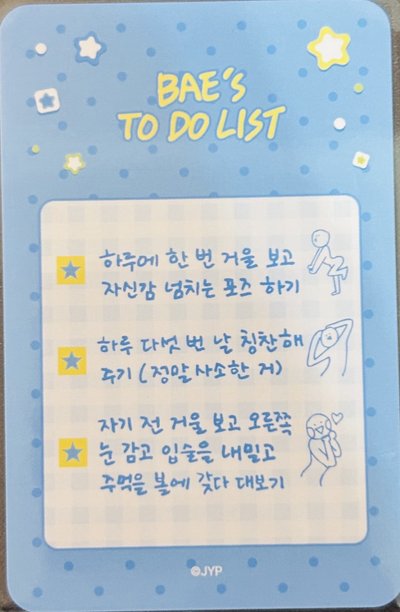 BAE'S
TO DO LIST
하루에 한 번 거울 보고
자신감 넘치는 포즈 하기
하루 다섯 번 날 칭찬해
주기 (정말 사소한 거)
자기 전 거울 보고 오른쪽
눈 감고 입술을 내밀고
주먹을 볼에 갖다 대보기
©JYP